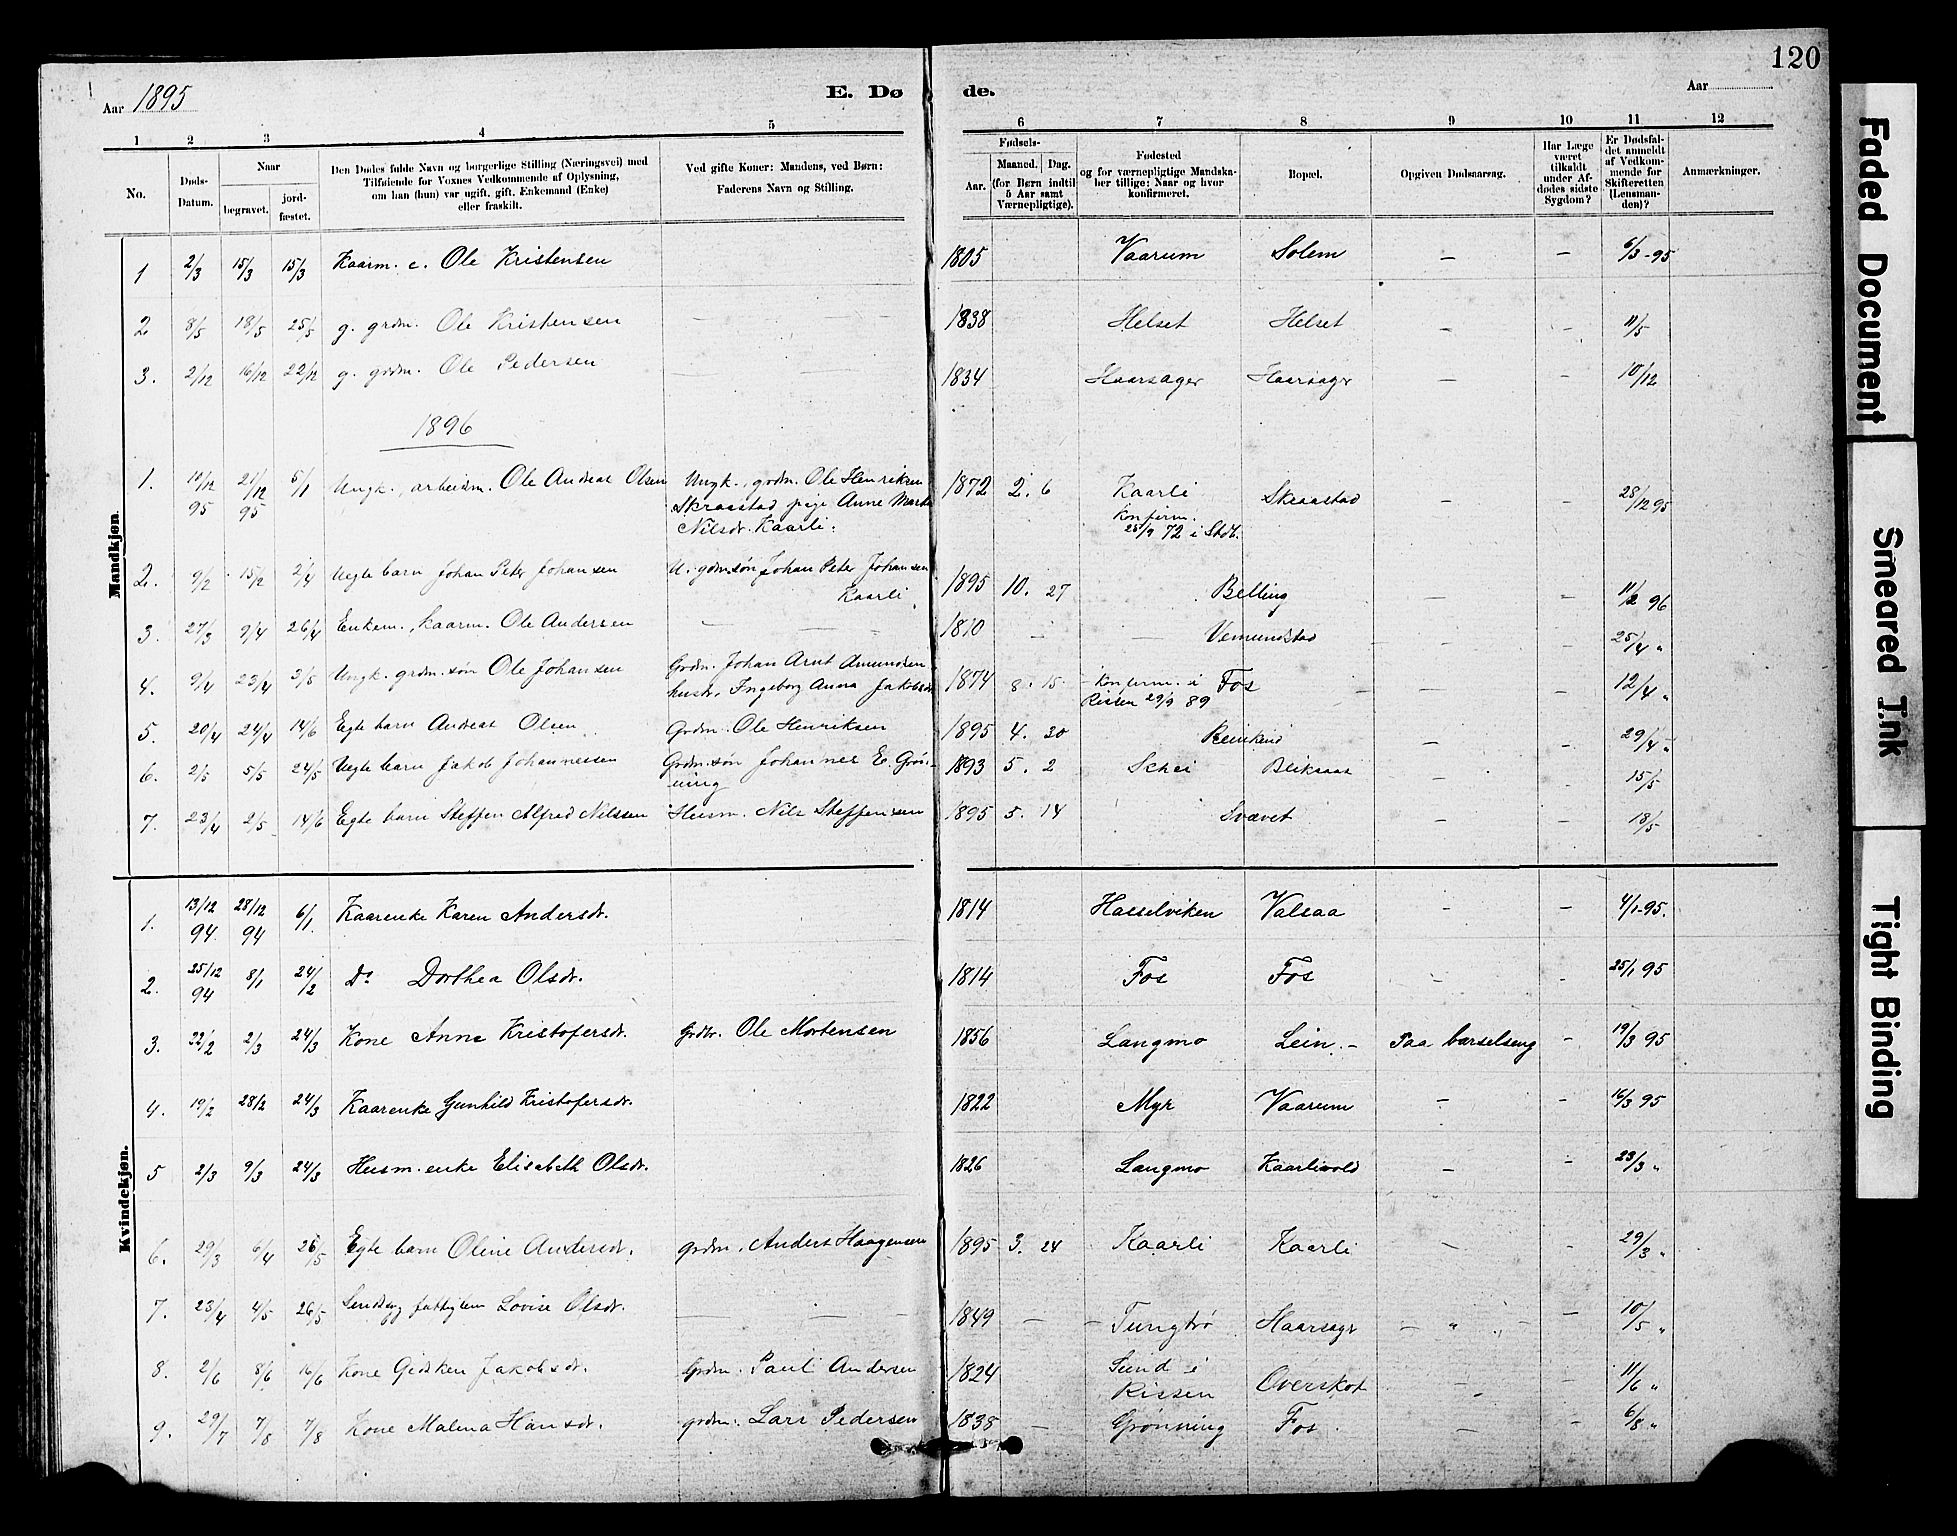 120
Aar 1895
E. Dø
de.
Aar
1 2 3 4 5 6 7 8 9 10 11 12
No.
Døds-
Datum.
Naar
begravet.
jord-
fæstet.
Den Dødes fulde Navn og borgerlige Stilling (Næringsvei) med
Tilføiende for Voxnes Vedkommende af Oplysning,
om han (hun) var ugift, gift, Enkemand (Enke)
eller fraskilt.
Ved gifte Koner: Mandens, ved Børn:
Faderens Navn og Stilling.
Fødsels-
Aar.
Maaned.
Dag.
(for Børn indtil
5 Aar samt
Værnepligtige).
Fødested
og for værnepligtige Mandska-
ber tillige: Naar og hvor
konfirmeret.
Bopæl.
Opgiven Dødsaarsag.
Har Læge
været
tilkaldt
under Af-
dødes sidste
Sygdom?
Er Dødsfal-
det anmeldt
af Vedkom-
mende for
Skifteretten
(Lensman-
den)?
Anmærkninger.
Mandkjøn.
1 2/3 15/3 15/3 Kaarm. e. Ole Kristensen 1805 Vaarum Solem – – 6/3-95
2 8/5 18/5 25/5 g. grdm. Ole Kristensen — — 1838 Helset Helset – – 11/5
3. 2/12 16/12 22/12 g. grdm. Ole Pedersen — — 1834 Haarsager Haarsagr – – 10/12
1896
1. 10/12 95 21/12 95 5/1 Ungk., arbeidm. Ole Andreas Olsen Ungk., grdm. Ole Henriksen 1872 2. 6 Kaarli Skraastad – 28/12 95
Skraastad pige Anne Marta konfirm.
Nilsdr. Kaarli. 72 i Stdb.
2. 9/2 15/2 2/4 Uegte barn Johan Peter Johansen U. grdm.søn Johan Peter Johansen 1895 10. 27 Belling – – 11/2 96
Kaarli
3. 27/3 9/4 26/4 Enkem., kaarm. Ole Andersen — — 1810 – — Vemundstad – – 25/4 "
4. 9/4 23/4 3/5 Ungk. grdm.søn Ole Johansen Grdm. Johan Arnt Amundsen 1874 8. 15 konfirm. i Fos – – 12/4 "
hustr. Ingeborg Anna Jakobsdr. Rissen 29/9 89
5. 20/4 24/4 14/6 Egte barn Andreas Olsen Grdm. Ole Henriksen 1895 4. 30 Reinkind – – 29/4 "
6. 2/5 5/5 24/5 Uegte barn Jakob Johannessen Grdm.søn Johannes E. Grøn- 1893 5. 2 Schei Bliksaas – – 15/5
ning
7. 23/4 2/5 14/6 Egte barn Steffen Alfred Nilssen Husm. Nils Steffensen 1895 5. 14 Svavet – – 18/5
Kvindekjøn.
1. 13/12 94. 28/12 94 6/1. Kaarenke Karen Andersdr. 1814 Hasselviken Valsaa – – 4/1-95.
2. 25/12 94 8/1 24/2 Do Dorthea Olsdr. 1814 Fos Fos – – 25/1 95
3. 22/2 2/3 24/3 Kone Anne Kristofersdr. Grdbr. Ole Mortensen 1856 Langmo Lein – Paa barselseng – 19/3 95
4. 19/2 28/2 24/3 Kaarenke Gunhild Kristofersdr. 1822 Myr Vaarum – – 16/3 95
5 2/3 9/3 24/3 Husm. enke Elisabeth Olsdr. 1826 Langmo Kaarlivold – – 23/3 "
6. 29/3 6/4 26/5 Egte barn Oline Andersdr. grdm. Anders Haagensen 1895 3. 24 Kaarli Kaarli – – 29/3 "
7. 23/4 4/5 26/5 Sindssyg fattiglem Lovise Olsdr. — — 1849 – – Tungtrø Haarsagr – " – – 10/5 "
8. 2/6 8/6 16/6 Kone Gidsken Jakobsdr. Grdm. Paul Andersen 1824 Sund i Overskot – – 11/6 "
Rissen
9. 29/7 7/8 7/8 Kone Malena Hansdr. grdm. Lars Pedersen 1838 – Grønning Fos – – 6/8 "
Faded Document
Smeared Ink
Tight Binding